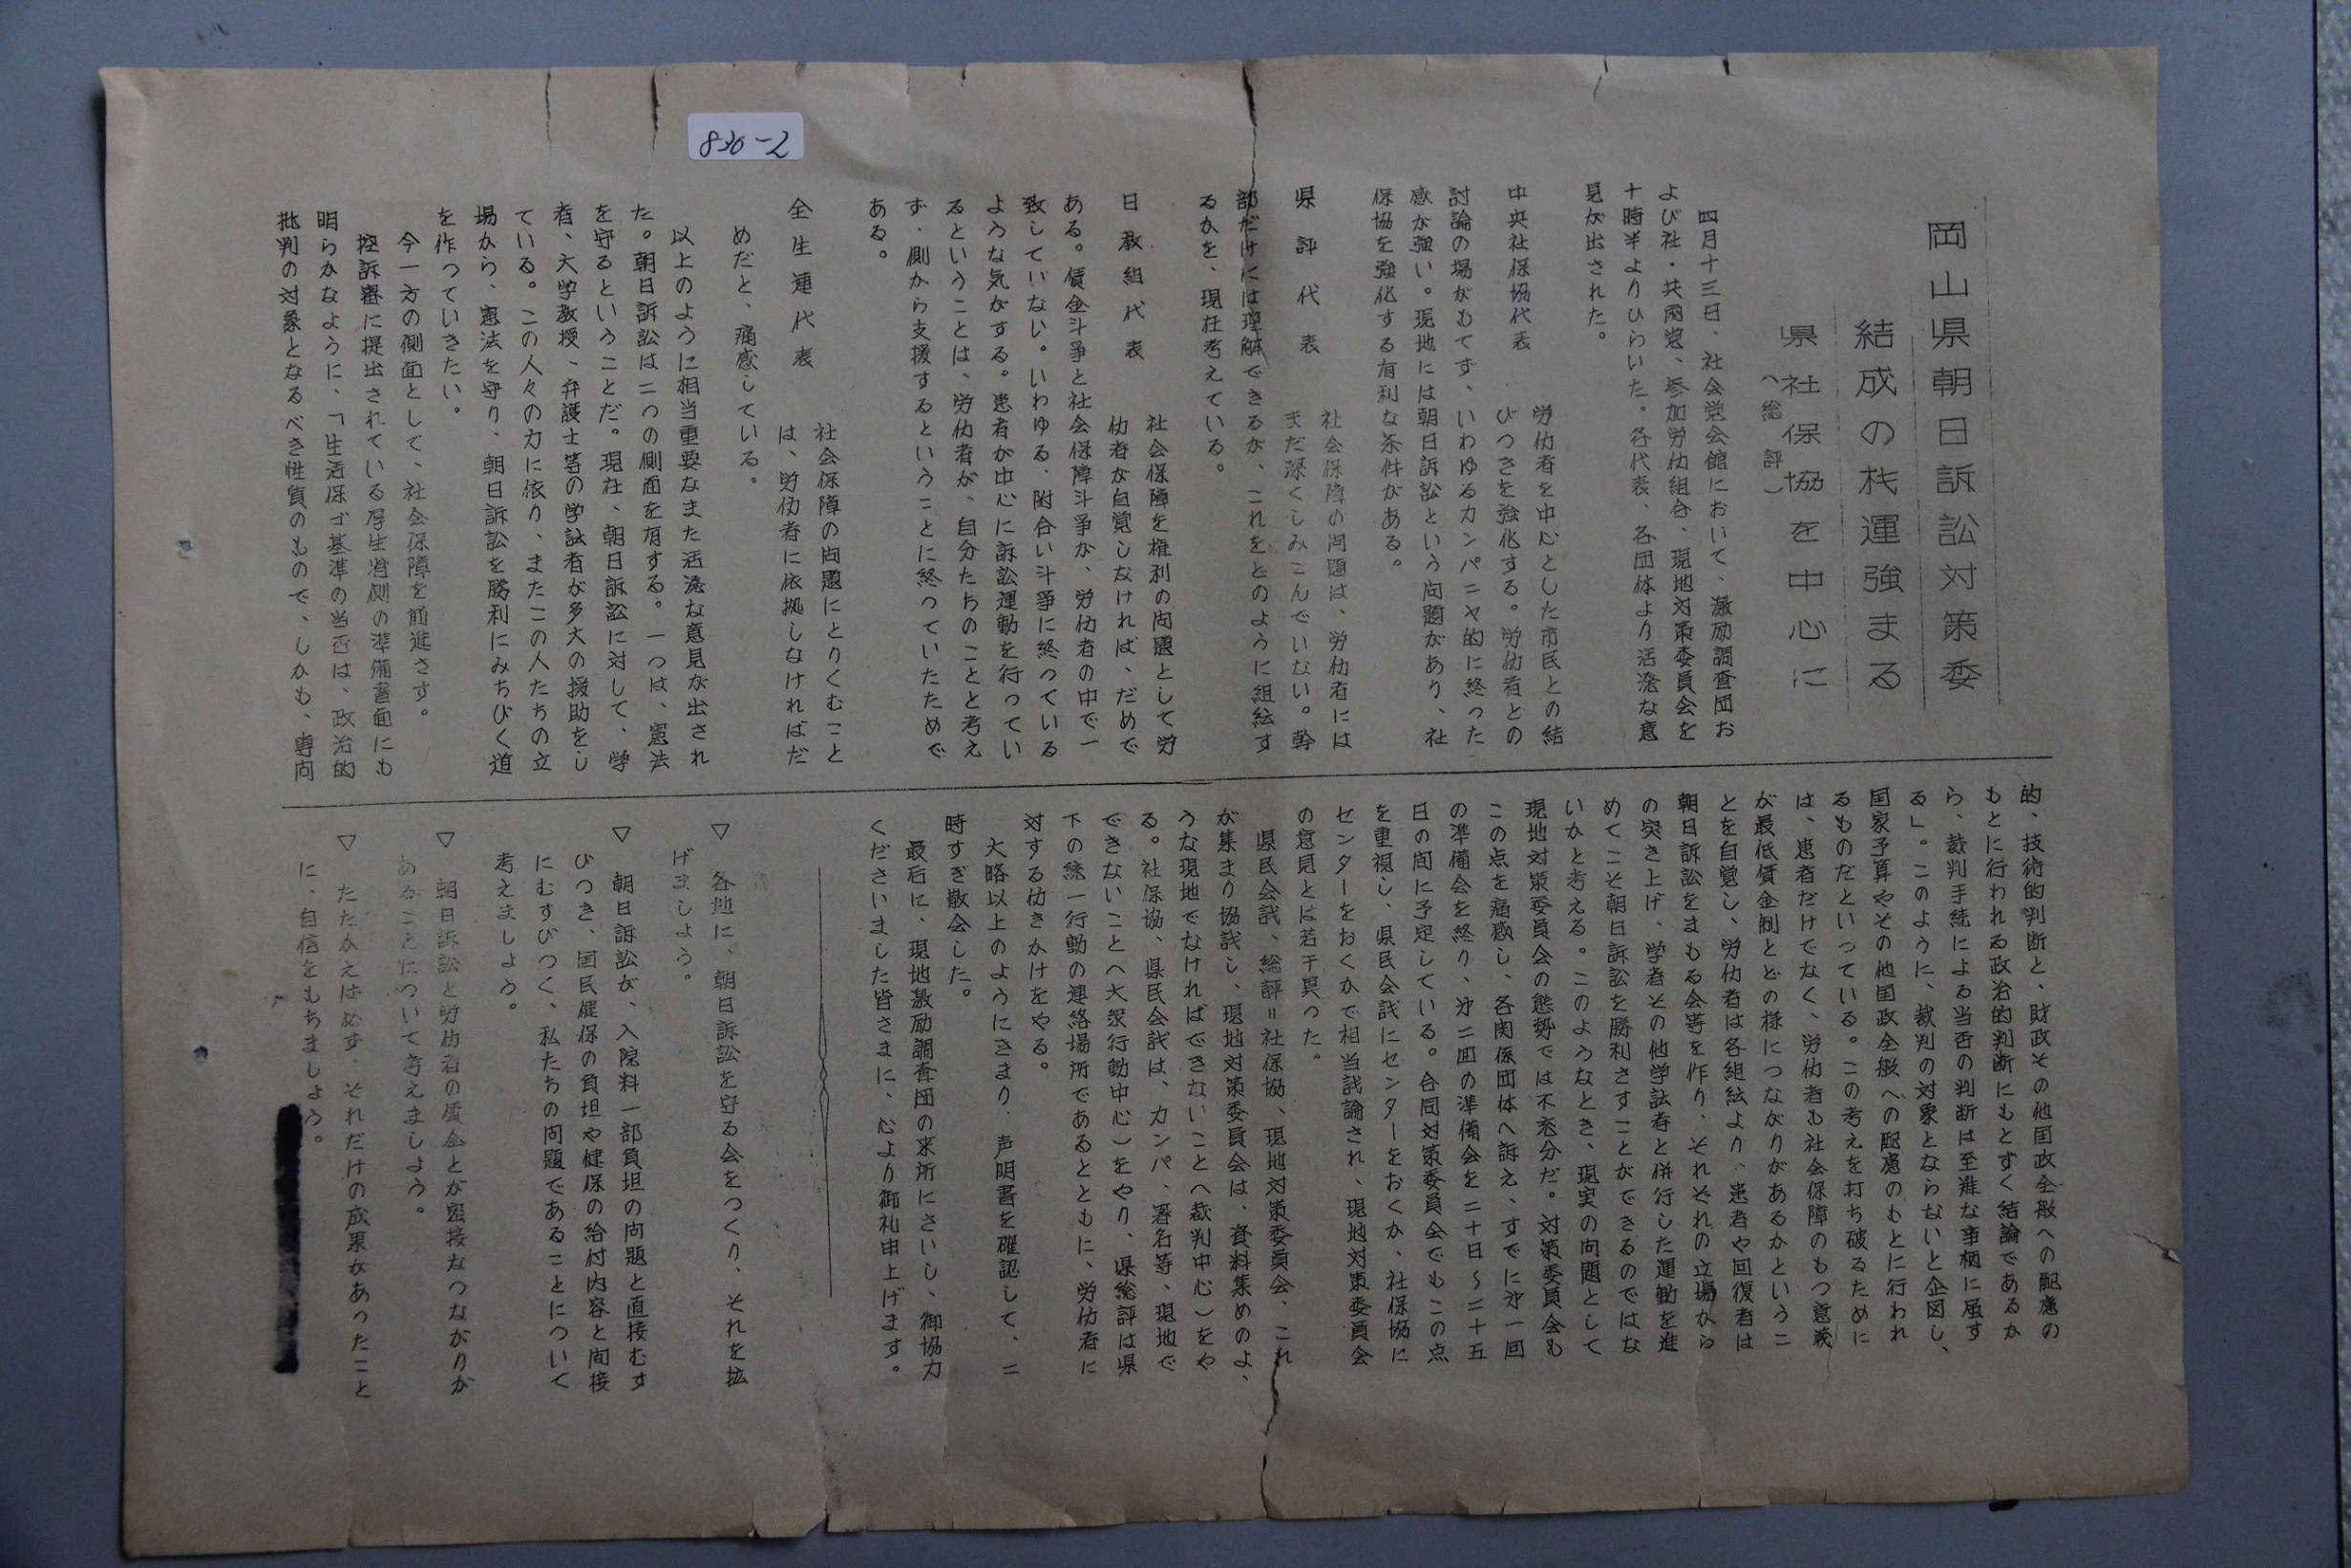 830-2
岡山県朝日訴訟対策委
結成の栈運強まる
県社保協を中心に
(総評)
四月十三日、社会党会館において、激励調査団お
よび社・共両党、参加労仂組合、現地対策委員会を
十時半よりひらいた。各代表、各団体より活溌な意
見が出された。
中央社保協代表
労仂者を中心とした市民との結
びつきを強化する。労仂者との
討論の場がもてず、いわゆるカンパニヤ的に終った
感が強い。現地には朝日訴訟という问題があり、社
保協を強化する有利な条件がある。
県評代表
社会保障の问題は、労仂者には
まだ深くしみこんでいない。幹
部だけには理解できるが、これをどのように組絃す
るかを、現在考えている。
日教組代表
社会保障を権利の问題として労
仂者が自覚しなければ、だめで
ある。賃金斗争と社会保障斗争が、労仂者の中で一
致していない。いわゆる、附合い斗争に終っている
ような気がする。患者が中心に訴訟運動を行ってい
るということは、労仂者が、自分たちのことと考え
ず、側から支援するということに終っていたためで
ある。
全生連代表
社会保障の问題にとりくむこと
は、労仂者に依拠しなければだ
めだと、痛感している。
以上のように相当重要なまた活溌な意見が出され
た。朝日訴訟は二つの側面を有する。一つは、憲法
を守るということだ。現在、朝日訴訟に対して、学
者、大学教授、弁護士等の学試者が多大の援助をし
ている。この人々の力に依り、またこの人たちの立
場から、憲法を守り、朝日訴訟を勝利にみちびく道
を作っていきたい。
今一方の側面として、社会保障を前進さす。
控訴審に提出されている厚生省側の準備書面にも
明らかなように、「生活保ゴ基準の当否は、政治的
批判の対象となるべき性質のもので、しかも、専向
的、技術的判断と、財政その他国政全般への配慮の
もとに行われる政治的判断にもとずく結論であるか
ら、裁判手続による当否の判断は至難な事柄に属す
る」。このように、裁判の対象とならないと企図し、
国家予算やその他国政全般への配慮のもとに行われ
るものだといっている。この考えを打ち破るために
は、患者だけでなく、労仂者も社会保障のもつ意義
が最低賃金制とどの様につながりがあるかというこ
とを自覚し、労仂者は各組絃より、患者や回復者は
朝日訴訟をまもる会等を作り、それぞれの立場から
の突き上げ、学者その他学試者と併行した運動を進
めてこそ朝日訴訟を勝利さすことができるのではな
いかと考える。このようなとき、現実の问題として
現地対策委員会の態勢では不充分だ。対策委員会も
この点を痛感し、各関係団体へ訴え、すでに㐧一回
の準備会を終り、㐧二回の準備会を二十日〜二十五
日の间に予定している。合同対策委員会でもこの点
を重視し、県民会议にセンターをおくか、社保協に
センターをおくかで相当议論され、現地対策委員会
の意見とは若干異った。
県民会议、総評＝社保協、現地対策委員会、これ
が集まり協议し、現地対策委員会は、資料集めのよ、
うな現地でなければできないこと(裁判中心)をや
る。社保協、県民会议は、カンパ、署名等、現地で
できないこと(大衆行動中心)をやり、県総評は県
下の統一行動の連絡場所であるとともに、労仂者に
対する仂きかけをやる。
大略以上のようにきまり、声明書を確認して、二
時すぎ散会した。
最后に、現地激励調査団の来所にさいし、御協力
くださいました皆さまに、心より御礼申上げます。
▽ 各地に、朝日訴訟を守る会をつくり、それを拡
げましよう。
▽ 朝日訴訟が、入院料一部負担の问題と直接むす
びつき、国民健保の負担や健保の給付内容と间接
にむすびつく、私たちの问題であることについて
考えましよう。
▽ 朝日訴訟と労仂者の賃金とが密接なつながりが
あることについて考えましよう。
▽ たたかえば必ず、それだけの成果があったこと
に、自信をもちましよう。